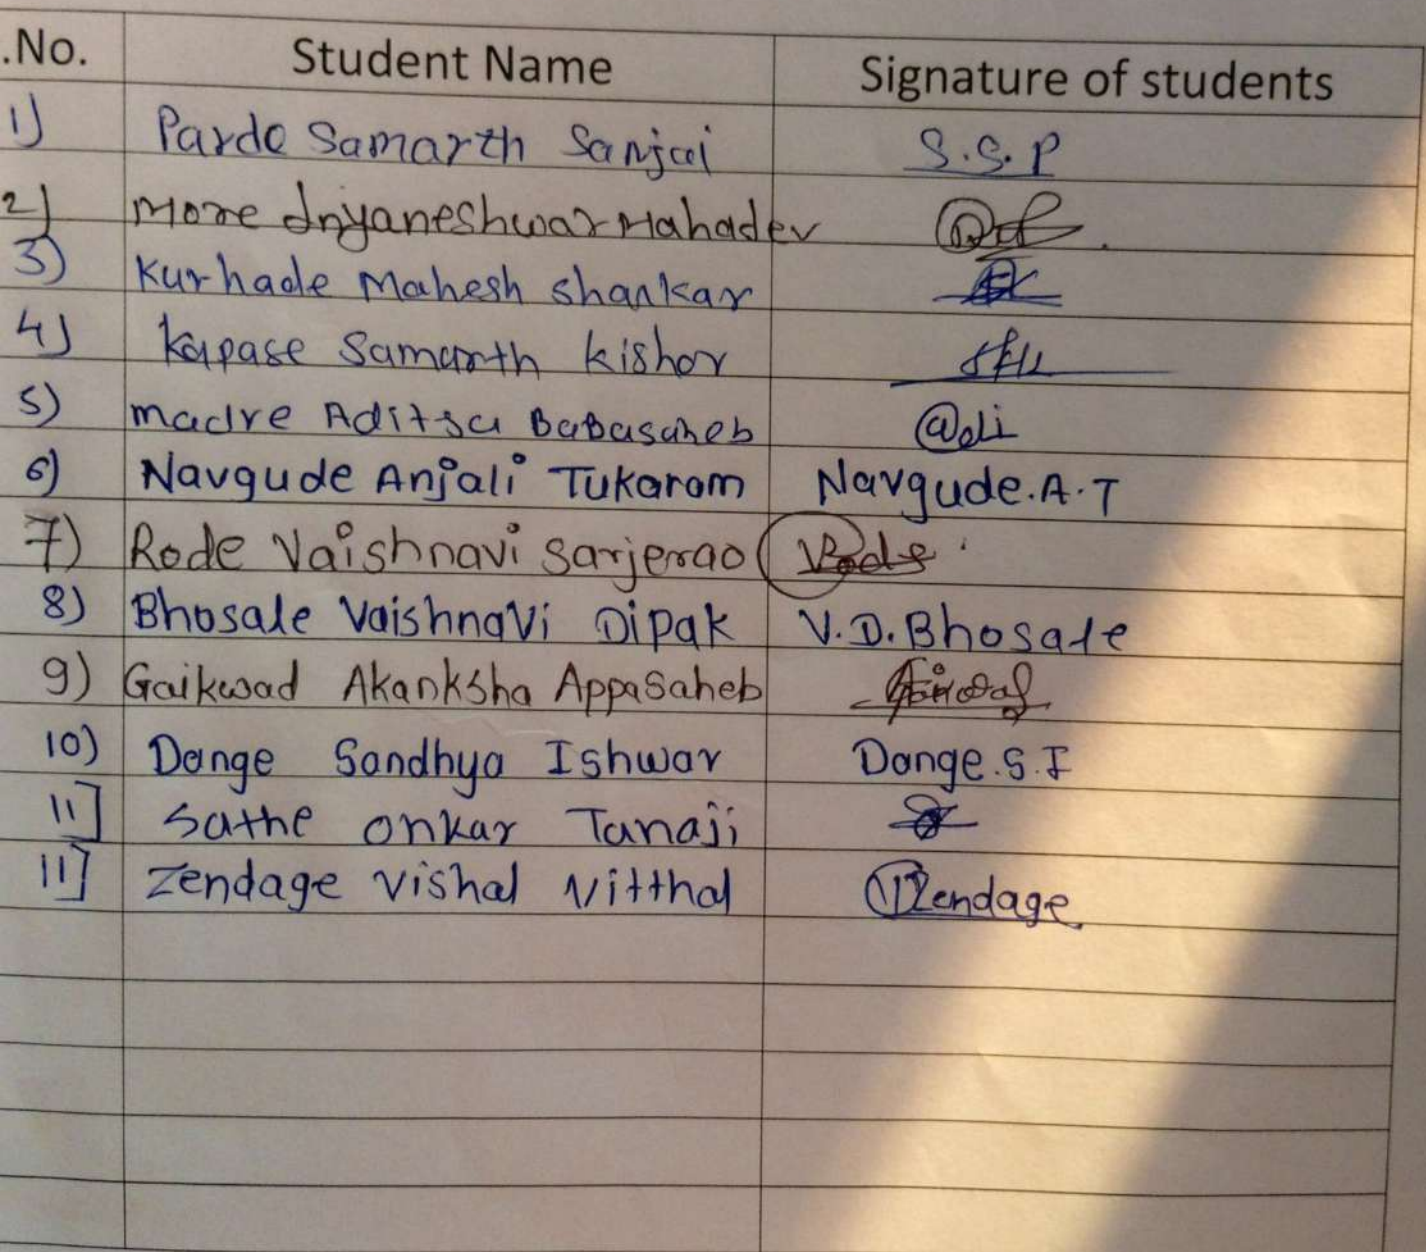 .No. Student Name Signature of students
1) Parde Samarth Sanjai S.S.P
2) More dnyaneshwar Mahadev
3) Kurhade Mahesh Shankar
4) Kapase Samarth kishor
5) madre Aditya Babasaheb @di
6) Navgude Anjali Tukaram Navgude.A.T
7) Rode Vaishnavi Sarjerao
8) Bhosale Vaishnavi Dipak V.D.Bhosale
9) Gaikwad Akanksha Appasaheb
10) Dange Sandhya Ishwar Dange.S.I
11] Sathe onkar Tanaji
11] Zendage Vishal Vitthal VZendage